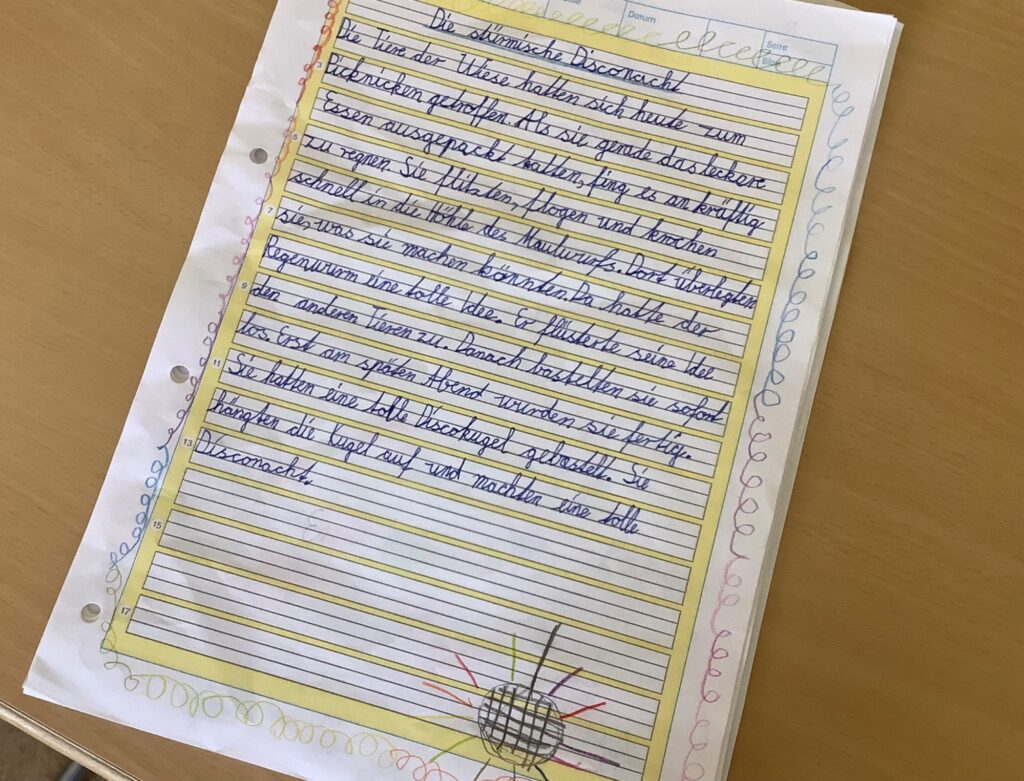 Datum
Seite
Blatt
Die stürmische Disconacht
Die Tiere der Wiese hatten sich heute zum
Picknicken getroffen. Als sie gerade das leckere
Essen ausgepackt hatten, fing es an kräftig
zu regnen. Sie flitzten, flogen und krochen
schnell in die Höhle des Maulwurfs. Dort überlegten
sie, was sie machen könnten. Da hatte der
Regenwurm eine tolle Idee. Er flüsterte seine Idee
den anderen Tieren zu. Danach bastelten sie sofort
los. Erst am späten Abend wurden sie fertig.
Sie hatten eine tolle Discokugel gebastelt. Sie
hängten die Kugel auf und machten eine tolle
Disconacht.
3
5
7
9
11
13
15
17